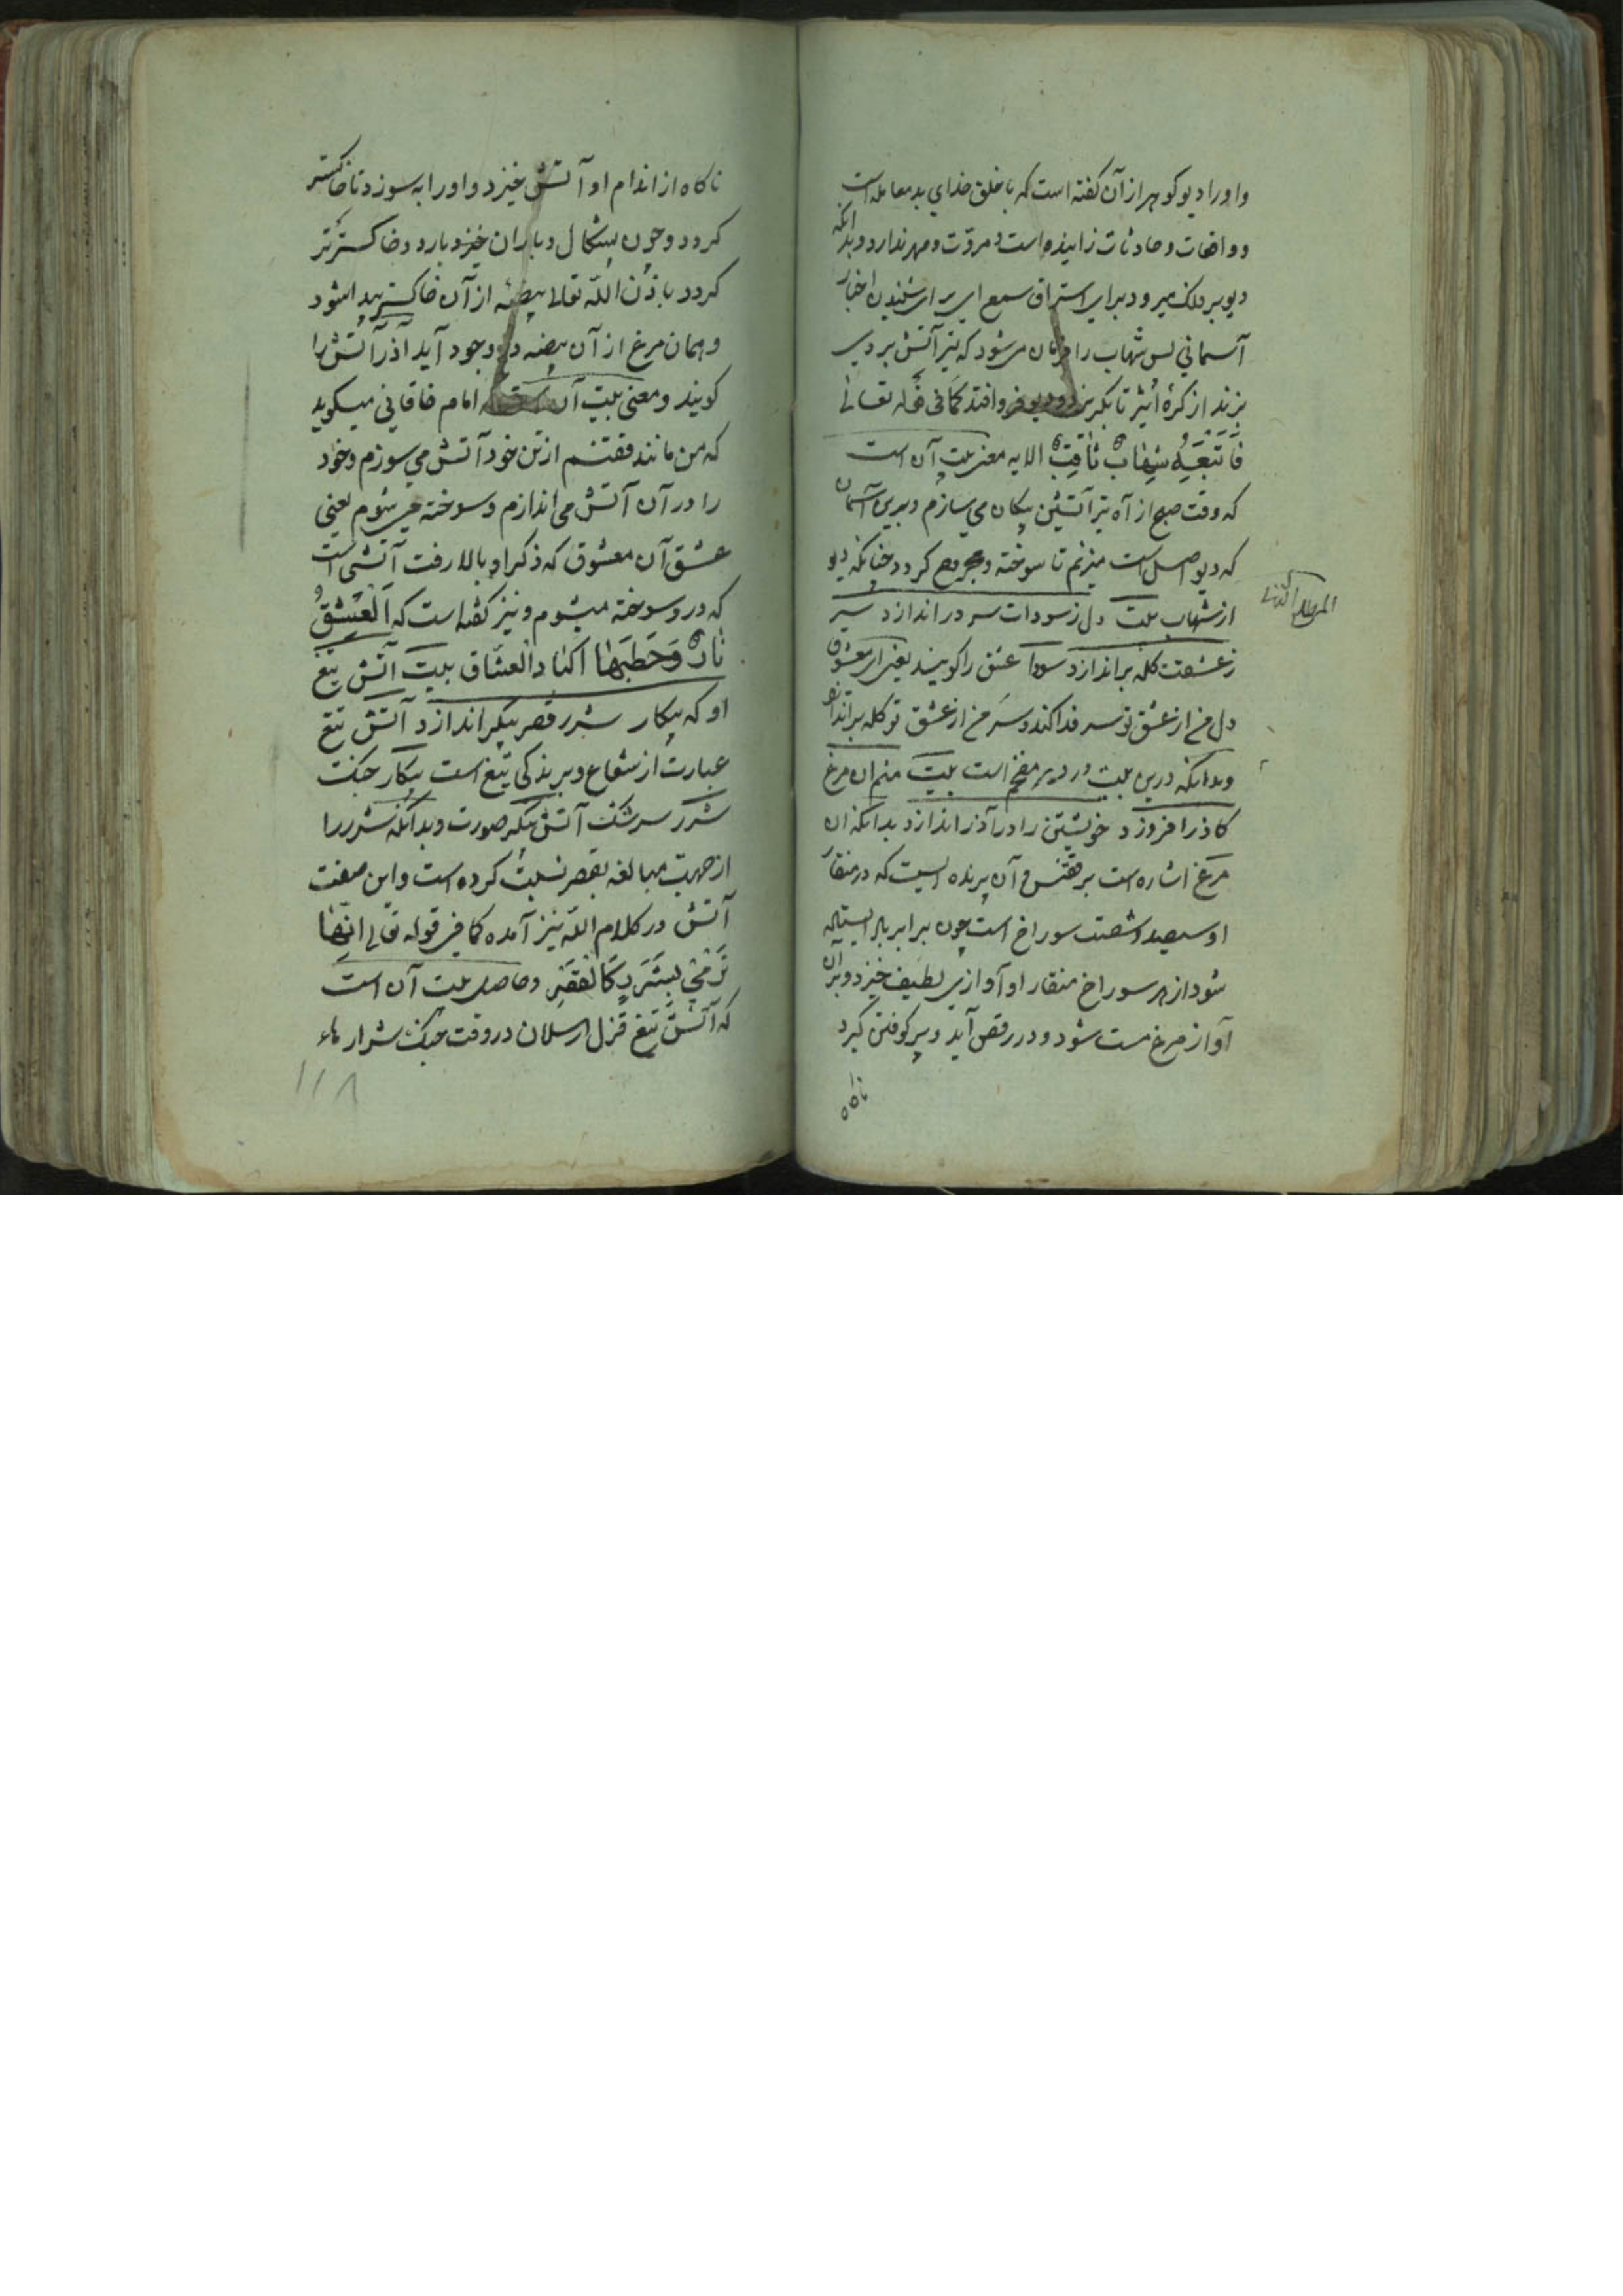 و او را دیو گوهر از آن گفته است که با خلق خدای بد معامله است
و واقعات و حادثات زاینده است و مروّت و مهر ندارد و بدانکه
دیو بر فلک میرود برای استراق سمع ای برای شنیدن اخبار
آسمانی پس شهاب را فرمان می‌شود که تیر آتش بر وی
بزند از کرهٔ اثیر تا بگریزد و دیو فرو افتد کما فی قوله تعالی
فَاَتْبَعَهُ شِهَابٌ ثَاقِبٌ الایه معنی بیت آن است
که وقت صبح از آه تیر آتشین پیکان می سازم و برین آسمان
که دیو اصل است میزنم تا سوخته و مجروح گردد چنانکه دیو
المطلع الثانی
از شهاب بیت دل ز سودات سر در اندازد سر
ز عشقت کله براندازد سودا عشق را گویند یعنی ای معشوق
دل من از عشق تو سر فدا کند و سر من از عشق تو کله براندازد
و بدانکه درین بیت در دیر مفخم است بیت منم آن مرغ
کاذر افروزد خویشتن را در آذر اندازد بدانکه آن
مرغ اشاره است بر ققنس و آن پرنده ایست که در منقار
او سیصد و شصت سوراخ است چون برابر باد ایستاده
شود از هر سوراخ منقار او آوازی لطیف خیزد و بر آن
آواز مرغ مست شود و در رقص آید و پر کوفتن گیرد
ناگاه
ناگاه از اندام او آتش خیزد و او را به سوزد تا خاکستر
گردد و چون بشکال و باران خیزد بارد و خاکستر تر
گردد باذن اللّه تعالی بیضه از آن خاکستر پیدا شود
و همان مرغ از آن بیضه در وجود آید آذر آتش را
گویند و معنی بیت آن است که امام خاقانی میگوید
که من مانند ققنسم از تن خود آتش می سوزم و خود
را در آن آتش می اندازم و سوخته می شوم یعنی
عشق آن معشوق که ذکر او بالا رفت آتشی است
که در و سوخته میشوم و نیز گفته است که اَلْعِشْقُ
نَارٌ وَحَطَبُهَا اکباد العشاق بیت آتش تیغ
او که پیکار شرر قصر پیکر اندازد آتش تیغ
عبارت از شعاع و برندگی تیغ است پیکار جنگ
شرر سرشک آتش پیکر صورت و بدانکه شرر را
از جهت مبالغه بقصر نسبت کرده است و این صفت
آتش در کلام اللّه نیز آمده کما فی قوله تعالی انّها
تَرْمِی بِشَرَرٍ کَالْقَصْرِ و حاصل بیت آن است
که آتش تیغ قزل ارسلان در وقت جنگ شرارهاء
۱۱۸